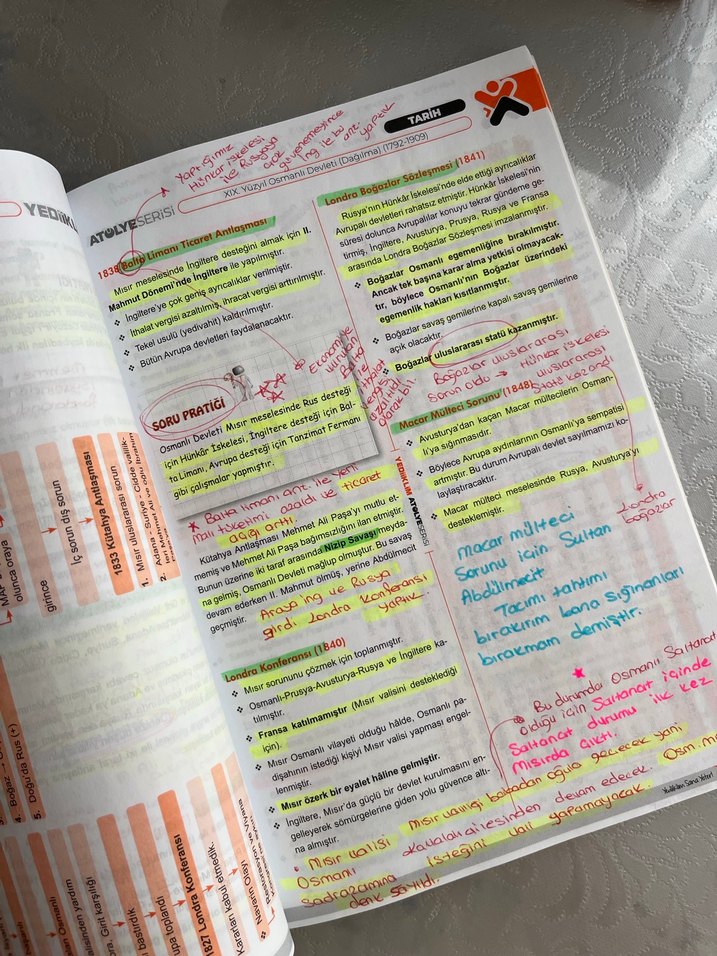 YEDİİKL
MAP
olunca oraya
girince
İç sorun dış sorun
1833 Kütahya Antlaşması
1. Mısır uluslararası sorun
2.
4. Boğaz
5. Doğru da Rus (+)
Girit karşılığı
bastırdık
upa toplandı
1827 Londra Konferansı
Kararları kabul etmedik.
Navarin Olayı
Yaptığımız
Hünkar İskelesi
ile Rusyaya
çok
güvenemeyince
ing ile bu ant.
yaptık
TARİH
XIX. Yüzyıl Osmanlı Devleti (Dağılma) (1792-1909)
ATÖLYESERİSİ
1838 Balta Limanı Ticaret Antlaşması
Mısır meselesinde İngiltere desteğini almak için II.
Mahmut Dönemi'nde İngiltere ile yapılmıştır.
İngiltere'ye çok geniş ayrıcalıklar verilmiştir.
İthalat vergisi azaltılmış, ihracat vergisi arttırılmıştır.
Tekel usulü (yedivahit) kaldırılmıştır.
Bütün Avrupa devletleri faydalanacaktır.
SORU PRATİĞİ
Osmanlı Devleti Mısır meselesinde Rus desteği
için Hünkâr İskelesi, İngiltere desteği için Bal-
ta Limanı, Avrupa desteği için Tanzimat Fermanı
gibi çalışmalar yapmıştır.
Balta limanı ant. ile yerli
malı tüketimi azaldı ve ticaret
açığı arttı
Kütahya Antlaşması Mehmet Ali Paşa'yı mutlu et-
memiş ve Mehmet Ali Paşa bağımsızlığını ilan etmiştir.
Bunun üzerine iki taraf arasında Nizip Savaşı meyda-
na gelmiş, Osmanlı Devleti mağlup olmuştur. Bu savaş
devam ederken II. Mahmut ölmüş, yerine Abdülmecit
geçmiştir.
Araya ing ve Rusya
girdi Londra Konferansı
yaptık
Londra Konferansı (1840)
Mısır sorununu çözmek için toplanmıştır.
Osmanlı-Prusya-Avusturya-Rusya ve İngiltere ka-
tılmıştır.
Fransa katılmamıştır (Mısır valisini desteklediği
için).
Mısır Osmanlı vilayeti olduğu hâlde, Osmanlı pa-
dişahının istediği kişiyi Mısır valisi yapması engel-
lenmiştir.
Mısır özerk bir eyalet hâline gelmiştir.
İngiltere, Mısır'da güçlü bir devlet kurulmasını en-
gelleyerek sömürgelerine giden yolu güvence altı-
na almıştır.
Londra Boğazlar Sözleşmesi (1841)
Rusya'nın Hünkâr İskelesi'nde elde ettiği ayrıcalıklar
Avrupalı devletleri rahatsız etmiştir. Hünkâr İskelesi'nin
süresi dolunca Avrupalılar konuyu tekrar gündeme ge-
tirmiş, İngiltere, Avusturya, Prusya, Rusya ve Fransa
arasında Londra Boğazlar Sözleşmesi imzalanmıştır.
Boğazlar Osmanlı egemenliğine bırakılmıştır.
Ancak tek başına karar alma yetkisi olmayacak-
tır, böylece Osmanlı'nın Boğazlar üzerindeki
egemenlik hakları kısıtlanmıştır.
Boğazlar savaş gemilerine kapalı savaş gemilerine
açık olacaktır.
Boğazlar uluslararası statü kazanmıştır.
Boğazlar uluslararası
sorun oldu → Hünkar iskelesi
uluslararası
statü kazandı
Macar Mülteci Sorunu (1848)
Avusturya'dan kaçan Macar mültecilerin Osman-
lı'ya sığınmasıdır.
Böylece Avrupa aydınlarının Osmanlı'ya sempatisi
artmıştır. Bu durum Avrupalı devlet sayılmamızı ko-
laylaştıracaktır.
Macar mülteci meselesinde Rusya, Avusturya'yı
desteklemiştir.
Londra
boğazlar
macar mülteci
Sorunu için Sultan
Abdülmecit
Tacımı tahtımı
bırakırım bana sığınanları
bırakmam demiştir.
YEDİİKLİM ATÖLYESERİSİ
Bu durumda Osmanlı Saltanat
olduğu için Saltanat içinde
Saltanat durumu ilk kez
mısırda çıktı.
Mısır valiliği babadan oğula geçecek yani
Kavalalı ailesinden devam edecek.
istediğini vali yapamayacak.
Mısır valisi
Osmanlı
Sadrazamına
denk sayıldı.
Yediiklim Sana Yeter!